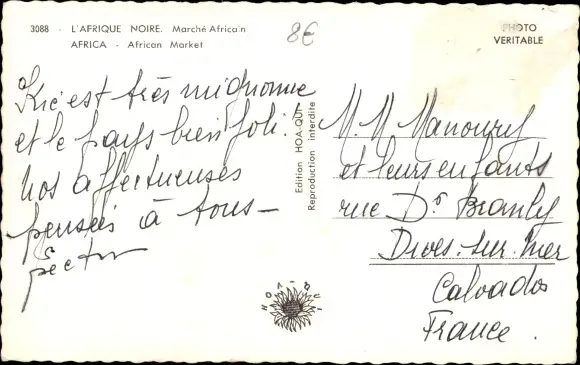 3088 - L'AFRIQUE NOIRE. Marché Africain
AFRICA - African Market
8€
PHOTO
VERITABLE
est très mignonne
et le pays bien joli.
Nos affectueuses
pensées à tous -
Edition HOA-QUI
Reproduction interdite
M. M. Manoury
et leurs enfants
rue Dr Branly
Dives-sur-Mer
Calvados
France.
HOA-QUI